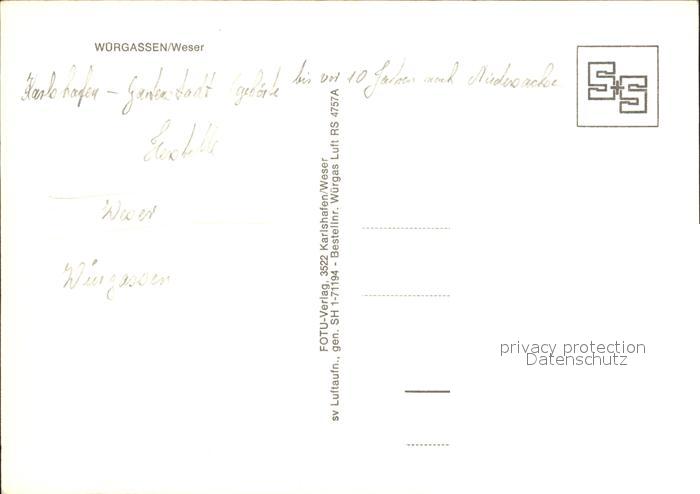 WÜRGASSEN/Weser
Karlshafen - Gartenstadt (gehörte bis vor 10 Jahren nach Niedersachsen
Herstelle
Weser
Würgassen
FOTU-Verlag, 3522 Karlshafen/Weser
sv Luftaufn., gen. SH 1-71194 - Bestellnr. Würgas Luft RS 4757A
S+S
privacy protection
Datenschutz